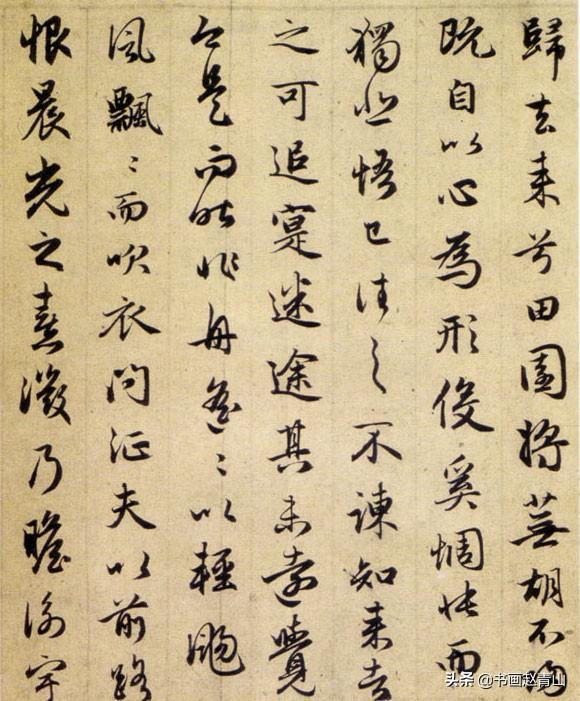 歸去来兮田園将蕪胡不歸
既自以心為形役奚惆悵而
獨悲悟已往之不諫知来者
之可追寔迷途其未遠覺
今是而昨非舟遥〻以輕颺
風飄〻而吹衣問征夫以前路
恨晨光之熹微乃瞻衡宇
头条 @书画赵青山